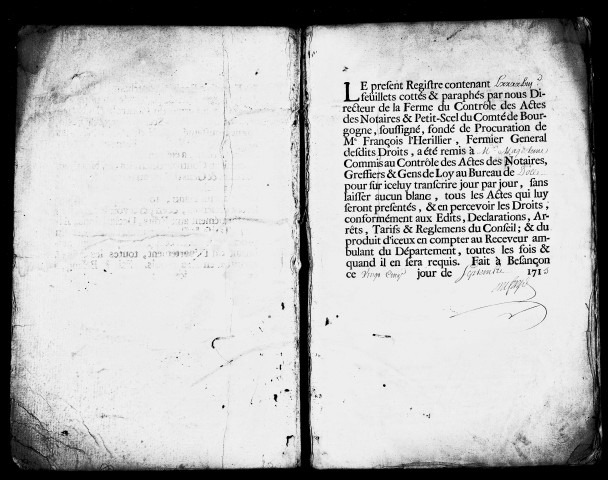 LE present Registre contenant
feuillets cottés & paraphés par nous Di-
recteur de la Ferme du Contrôle des Actes
des Notaires & Petit-Scel du Comté de Bour-
gogne, soussigné, fondé de Procuration de
Me François l'Herillier, Fermier General
desdits Droits, a été remis à Mr
Commis au Contrôle des Actes des Notaires,
Greffiers & Gens de Loy au Bureau de Dole
pour sur iceluy transcrire jour par jour, sans
laisser aucun blanc, tous les Actes qui luy
seront presentés, & en percevoir les Droits,
conformément aux Edits, Declarations, Ar-
rêts, Tarifs & Reglemens du Conseil; & du
produit d'iceux en compter au Receveur am-
bulant du Département, toutes les fois &
quand il en sera requis. Fait à Besançon
ce Vingt Cinq jour de Septembre 171